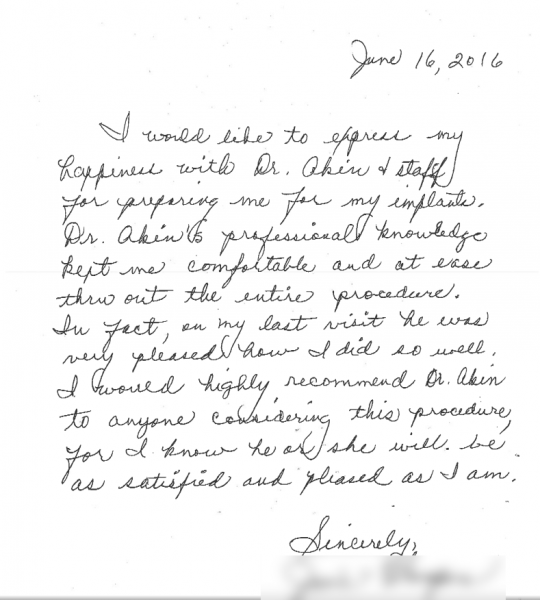 June 16, 2016
I would like to express my
happiness with Dr. Akin & staff
for preparing me for my implants.
Dr. Akin's professional knowledge
kept me comfortable and at ease
thru out the entire procedure.
In fact, on my last visit he was
very pleased how I did so well.
I would highly recommend Dr. Akin
to anyone considering this procedure,
for I know he or she will be
as satisfied and pleased as I am.
Sincerely,